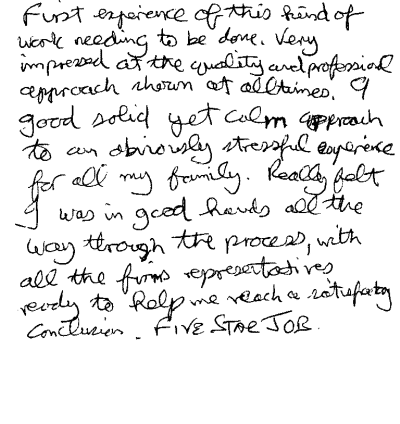 First experience of this kind of
work needing to be done. Very
impressed at the quality and professional
approach shown at all times. A
good solid yet calm approach
to an obviously stressful experience
for all my family. Really felt
I was in good hands all the
way through the process, with
all the firms representatives
ready to help me reach a satisfactory
conclusion. FIVE STAR JOB.